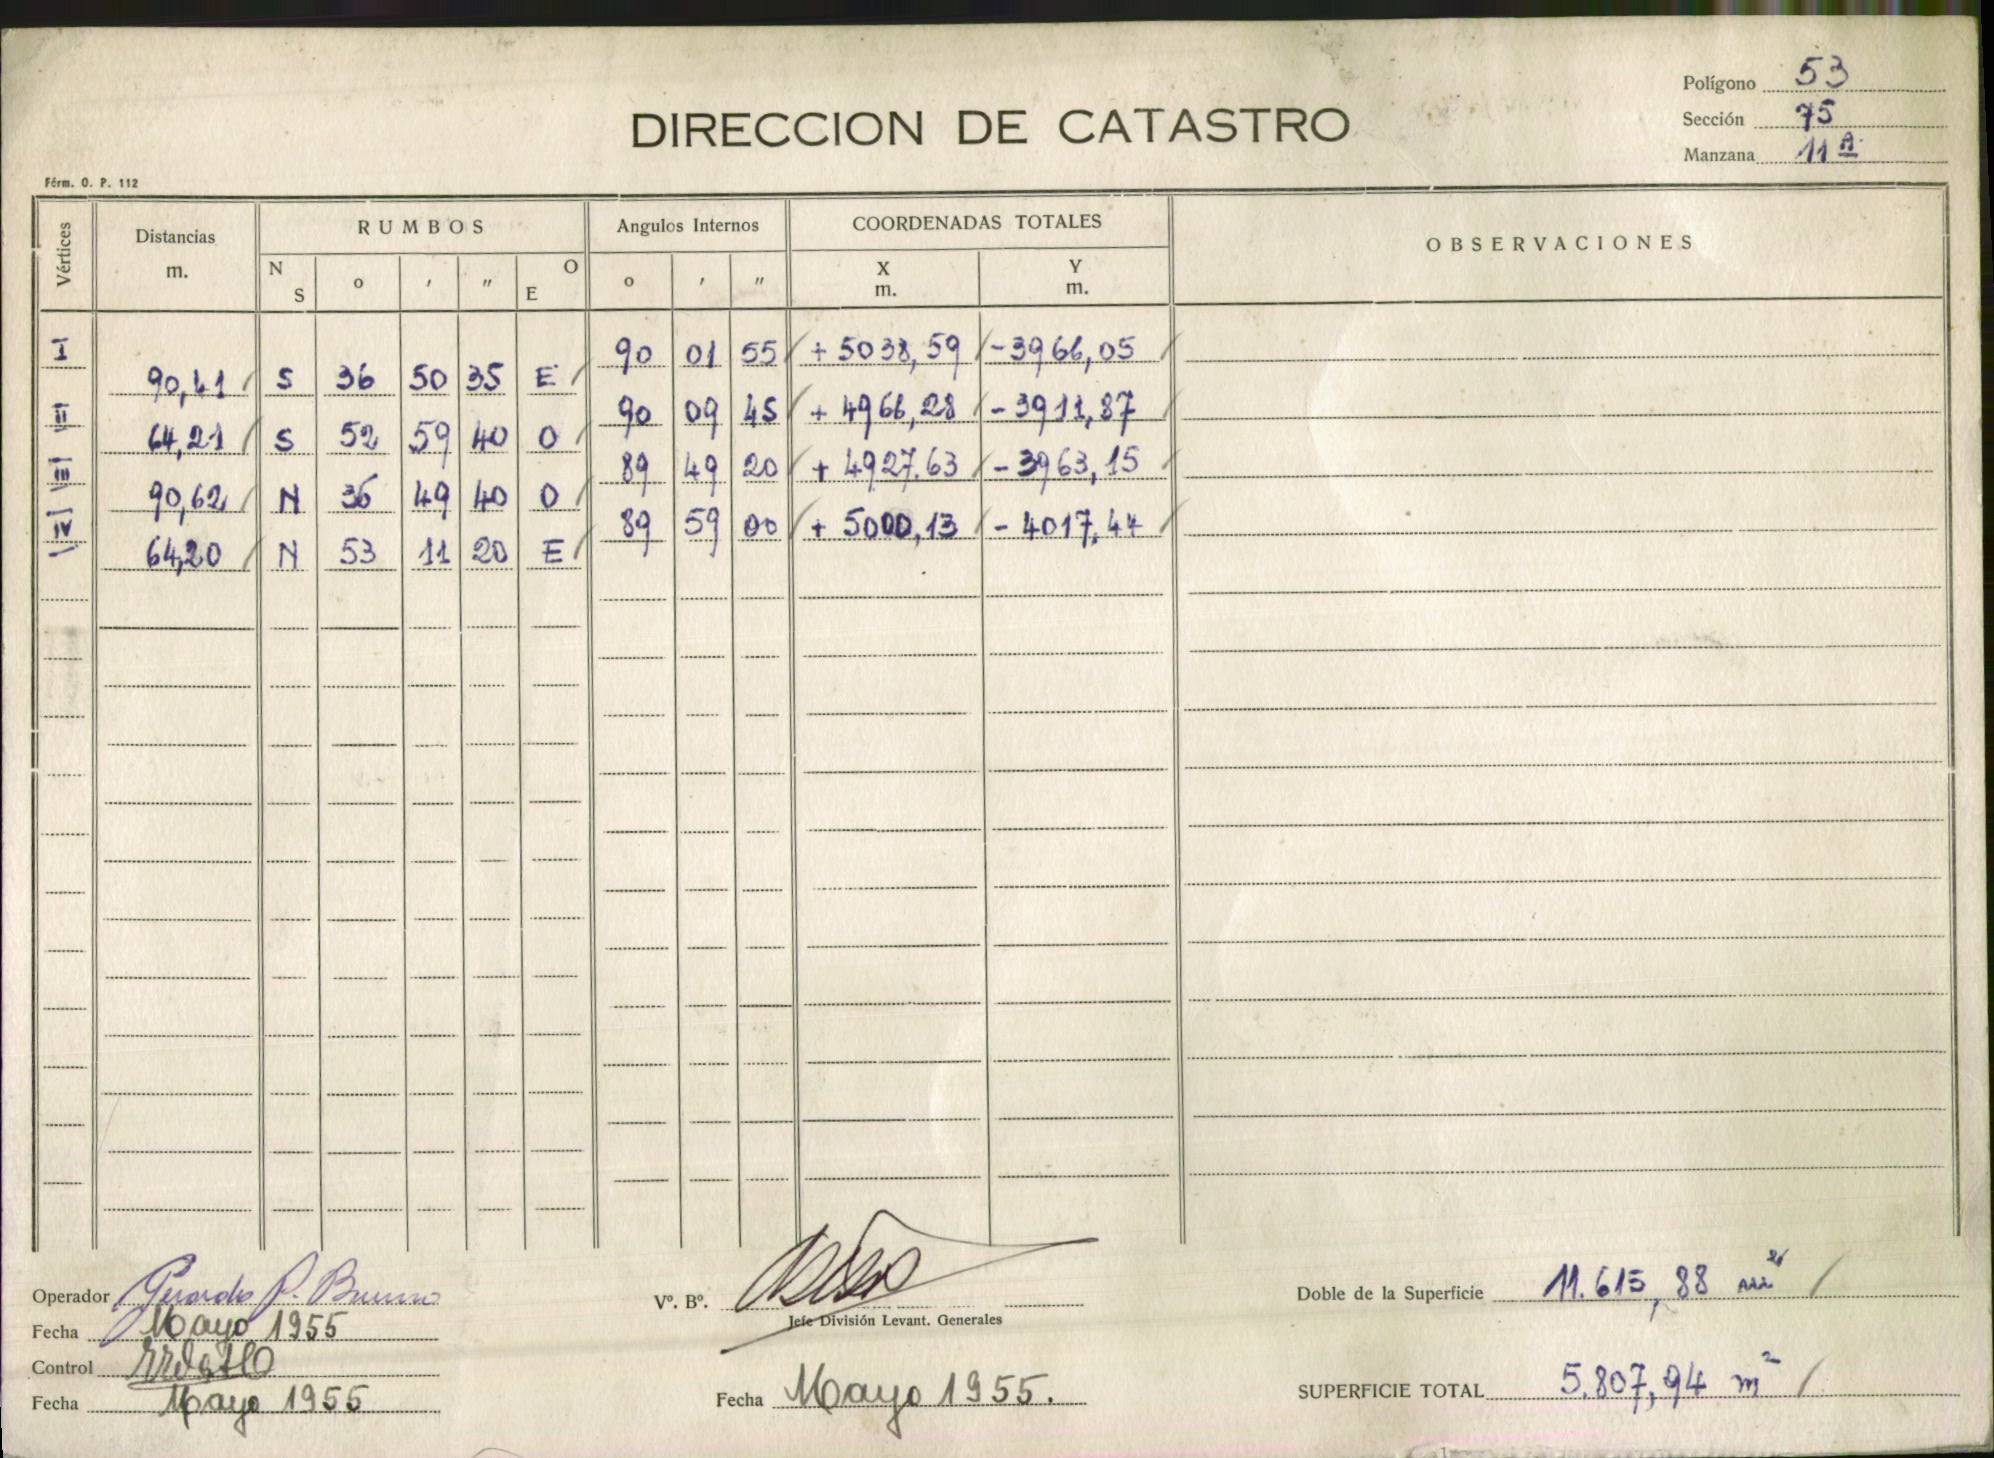 Polígono 53
Sección 75
Manzana 11 A
DIRECCION DE CATASTRO
Fórm. O. P. 112
Vértices Distancias m. RUMBOS N S ° ' " O E Angulos Internos ° ' " COORDENADAS TOTALES X m. Y m. OBSERVACIONES
I 90 01 55 + 5038,59 - 3966,05
90,41 S 36 50 35 E
II 90 09 45 + 4966,28 - 3911,87
64,21 S 52 59 40 O
III 89 49 20 + 4927.63 - 3963,15
90,62 N 36 49 40 O
IV 89 59 00 + 5000,13 - 4017,44
64,20 N 53 11 20 E
Operador Gerardo P.
Fecha Mayo 1955
Control
Fecha Mayo 1955
Vº. Bº.
Jefe División Levant. Generales
Fecha Mayo 1955.
Doble de la Superficie 11.615,88 m²
SUPERFICIE TOTAL 5.807,94 m²